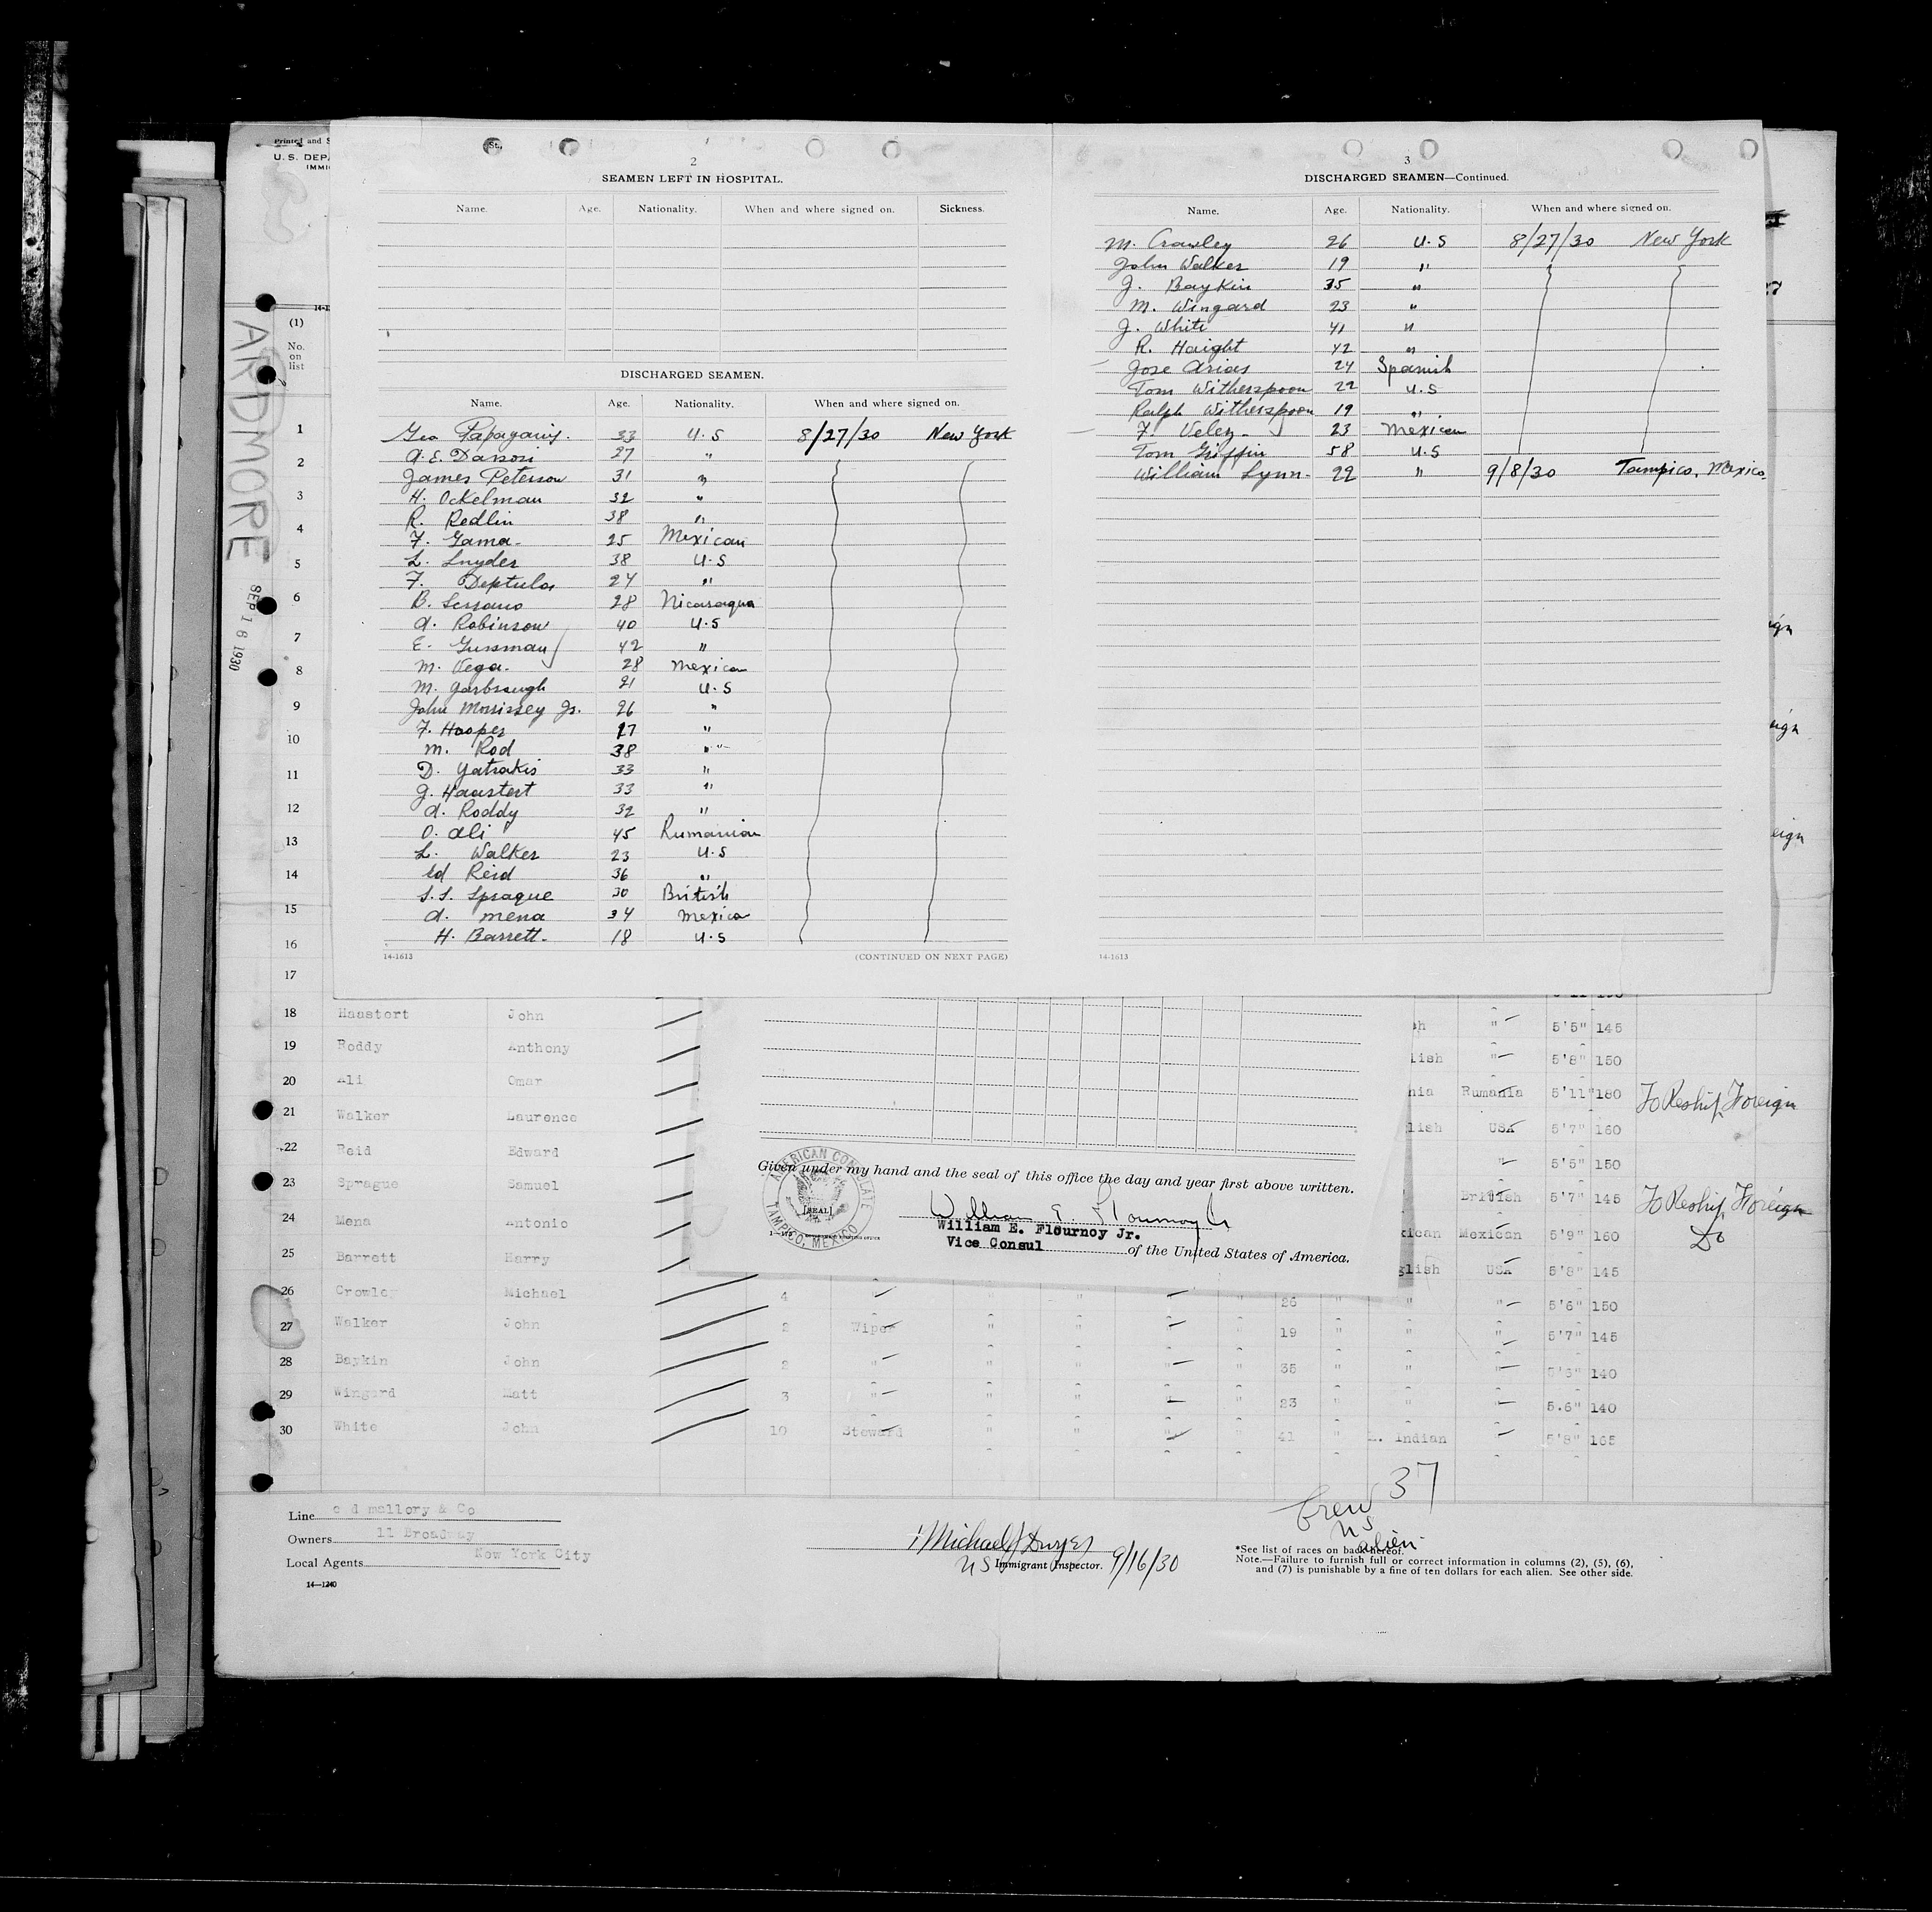 Printed and S
U. S. DEPA
IMMI
ARDMORE
SEP 16 1930
(1)
No.
on
list
2
SEAMEN LEFT IN HOSPITAL.
Name. Age. Nationality. When and where signed on. Sickness.
DISCHARGED SEAMEN.
Name. Age. Nationality. When and where signed on.
Geo 33 U.S 8/27/30 New York
27 "
James Peterson 31 "
H. Ockelman 32 "
R. Redlin 38 "
F. Gama 25 Mexican
L. Snyder 38 U.S
F. Deptula 24 "
B. Serrano 28 Nicaragua
A. Robinson 40 U.S
E. Gussman 42 "
M. Vega. 28 Mexican
M. Yarbrough 21 U.S
John Morrissey Jr. 26 "
F. Hooper 27 "
M. Rod 38 "
D. Yatrakis 33 "
J. Haastert 33 "
A. Roddy 32 "
O. Ali 45 Rumanian
L. Walker 23 U.S
Ed Reid 36 "
S.S. Sprague 30 British
A. Mena 34 Mexico
H. Barrett. 18 U.S
14-1613 (CONTINUED ON NEXT PAGE)
3
DISCHARGED SEAMEN—Continued.
Name. Age. Nationality. When and where signed on.
M. Crowley 26 U.S 8/27/30 New York
John Walker 19 "
J. Baykin 35 "
M. Wingard 23 "
J. White 41 "
R. Haight 42 "
Jose Arias 24 Spanish
Tom Witherspoon 22 U.S
Ralph Witherspoon 19 "
F. Velez 23 Mexican
Tom Griffin 58 U.S
William Lynn 22 " 9/8/30 Tampico, Mexico,
14-1613
1
2
3
4
5
6
7
8
9
10
11
12
13
14
15
16
17
18 Haastort John " 5'5" 145
19 Roddy Anthony lish " 5'8" 150
20 Ali Omar nia Rumania 5'11" 180 To Reship Foreign
21 Walker Laurence lish USA 5'7" 160
22 Reid Edward " 5'5" 150
23 Sprague Samuel British 5'7" 145 To Reship Foreign
24 Mena Antonio xican Mexican 5'9" 160 Do
25 Barrett Harry glish USA 5'8" 145
26 Crowley Michael 4 " " 26 " " " 5'6" 150
27 Walker John 2 Wiper " " " 19 " " " 5'7" 145
28 Baykin John 2 " " " " 35 " " " 140
29 Wingard Matt 3 " " " 23 " " " 5.6" 140
30 White John 10 Steward " " " " 41 " Indian 5'8" 165
Given under my hand and the seal of this office the day and year first above written.
AMERICAN CONSULATE
TAMPICO, MEXICO
[SEAL]
William E. Flournoy Jr.
William E. Flournoy Jr.
Vice Consul of the United States of America.
Crew 37
US
alien
Line c d mallory & Co
Owners 11 Broadway
Local Agents New York City
14—1240
Michael J Dwyer
US Immigrant Inspector. 9/16/30
*See list of races on back hereof.
Note.—Failure to furnish full or correct information in columns (2), (5), (6),
and (7) is punishable by a fine of ten dollars for each alien. See other side.